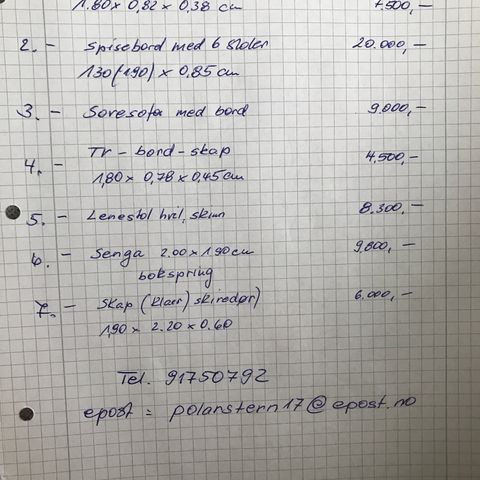 1.80 x 0,82 x 0.38 cm 7.500,-
2. - Spisebord med 6 stoler 20.000,-
130(190) x 0.85 cm
3. - Soresofa med bord 9.000,-
4. - Tr - bord - skap 4.500,-
1,80 x 0,78 x 0,45 cm
5. - Lenestol hvil, skinn 8.300,-
6. - Senga 2.00 x 1.90 cm 9.800,-
bokspring
7. - Skap (klær) skiredør) 6.000,-
1,90 x 2.20 x 0.60
Tel. 91750792
epost = polanstern17@epost.no